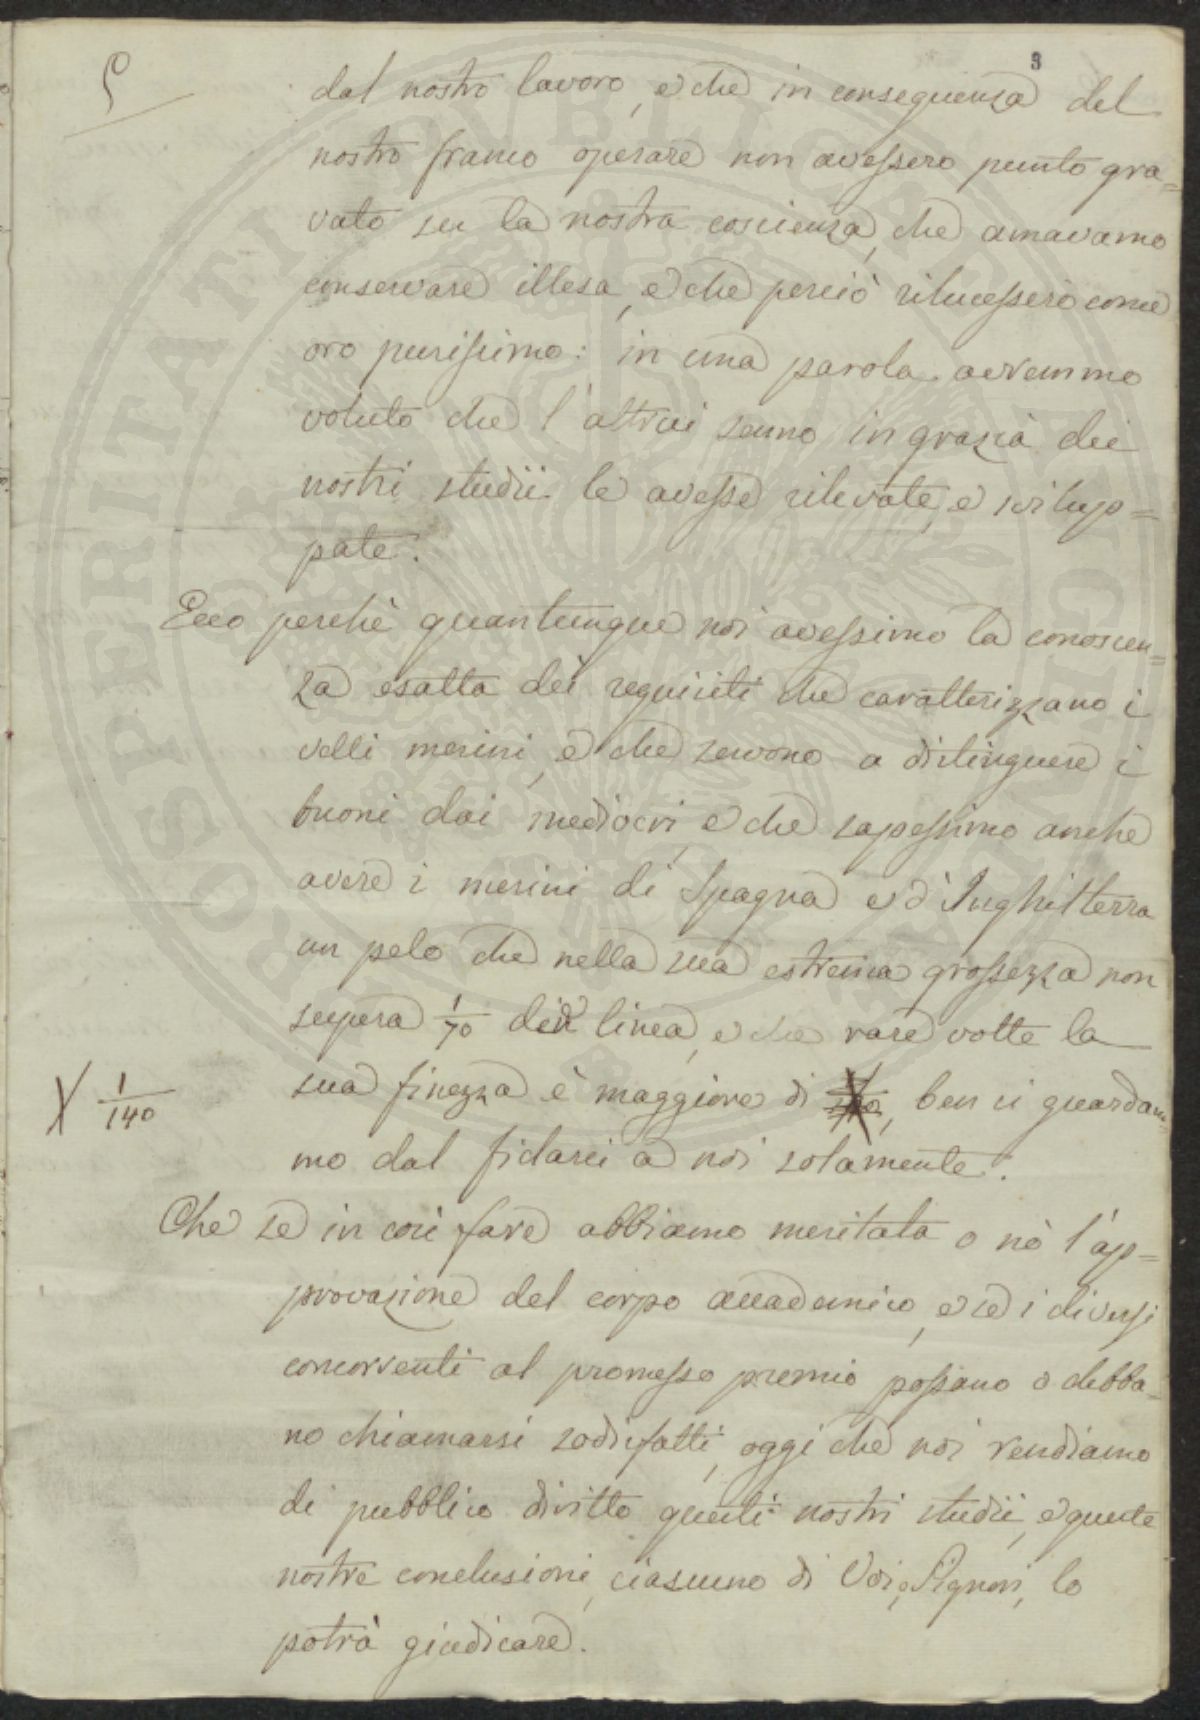 5
3
dal nostro lavoro, e che in conseguenza del
nostro franco operare non avessero punto gra=
vato su la nostra coscienza, che amavamo
conservare illesa, e che perciò rilucessero come
oro purissimo: in una parola avremmo
voluto che l'altrui senno in grazia dei
nostri studii le avesse rilevate, e svilup=
pate.
Ecco perchè quantunque noi avessimo la conoscen=
za esatta dei requisiti che caratterizzano i
velli merini, e che servono a distinguere i
buoni dai mediocri, e che sapessimo anche
avere i merini di Spagna e d'Inghilterra
un pelo che nella sua estrema grossezza non
supera 1/70 di linea, e che rare volte la
sua finezza è maggiore di, ben ci guardam
X 1/140
mo dal fidarci a noi solamente.
Che se in così fare abbiamo meritata o nò l'ap=
provazione del corpo accademico, e se i diversi
concorrenti al promesso premio possano o debba=
no chiamarsi sodisfatti, oggi che noi rendiamo
di pubblico diritto questi nostri studii, e queste
nostre conclusioni, ciascuno di Voi, o Signori, lo
potrà giudicare.
PROSPERITATI PVBLICAE